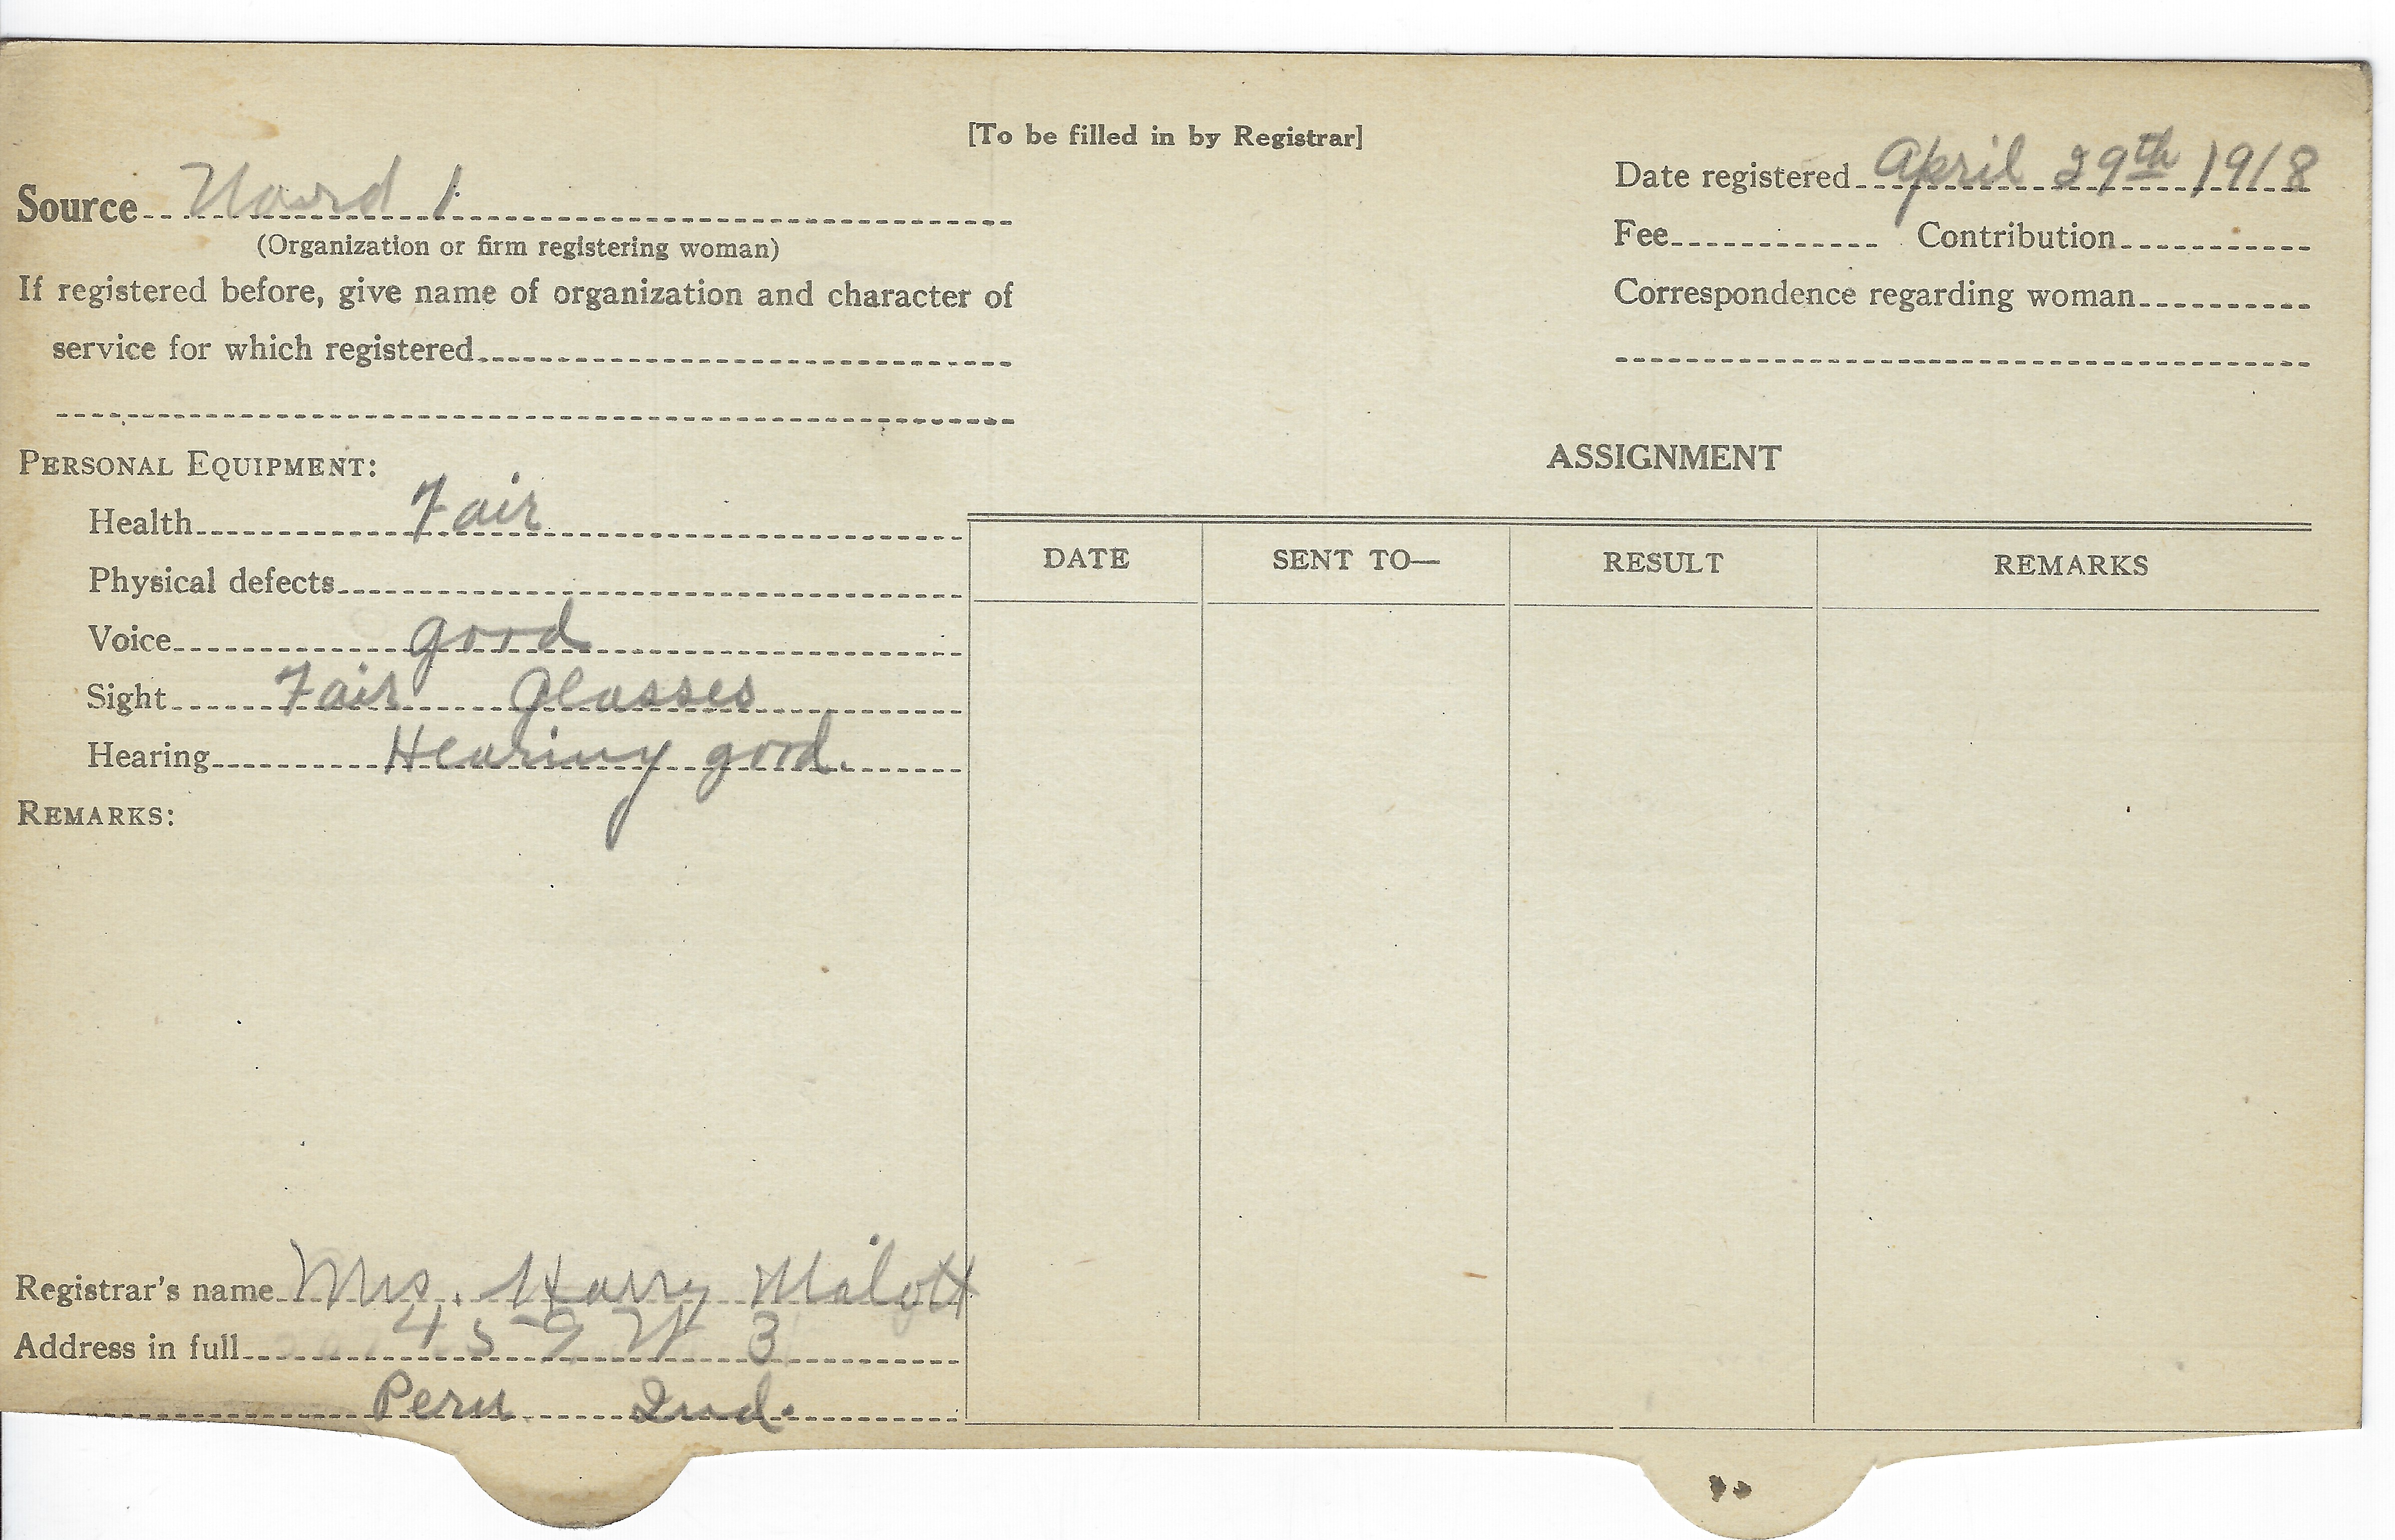 [To be filled in by Registrar]
Source Ward 1
(Organization or firm registering woman)
If registered before, give name of organization and character of
service for which registered
Date registered April 29th 1918
Fee Contribution
Correspondence regarding woman
PERSONAL EQUIPMENT:
Health Fair
Physical defects
Voice good
Sight Fair Glasses
Hearing Hearing good.
REMARKS:
ASSIGNMENT
DATE SENT TO— RESULT REMARKS
Registrar's name Mrs. Harry Malott
Address in full 459 W 3
Peru Ind.